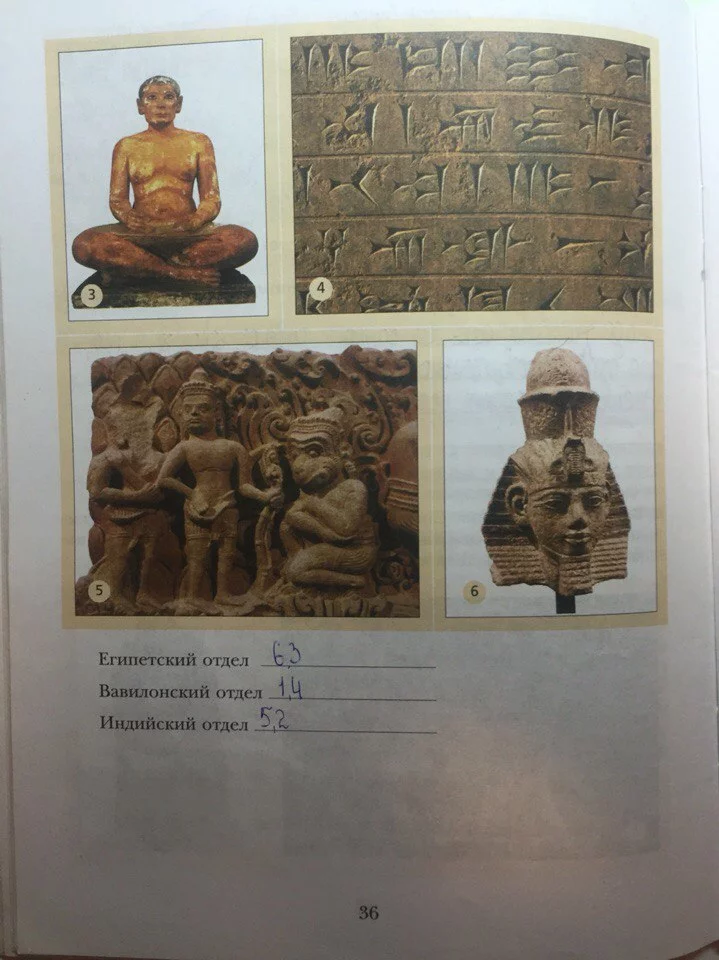 3
4
5
6
Египетский отдел 6,3
Вавилонский отдел 1,4
Индийский отдел 5,2
36